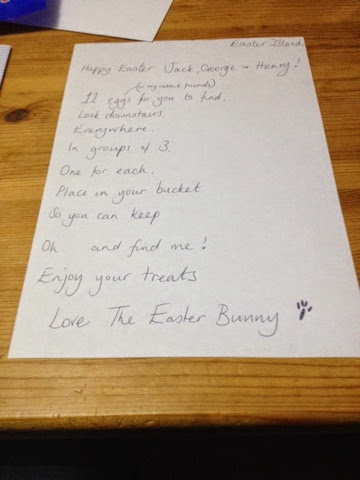 Easter Island
Happy Easter Jack, George + Henry!
(or my friends)
11 eggs for you to find.
Look downstairs,
Everywhere.
In groups of 3
One for each.
Place in your bucket
So you can keep
Oh.. and find me!
Enjoy your treats
Love The Easter Bunny